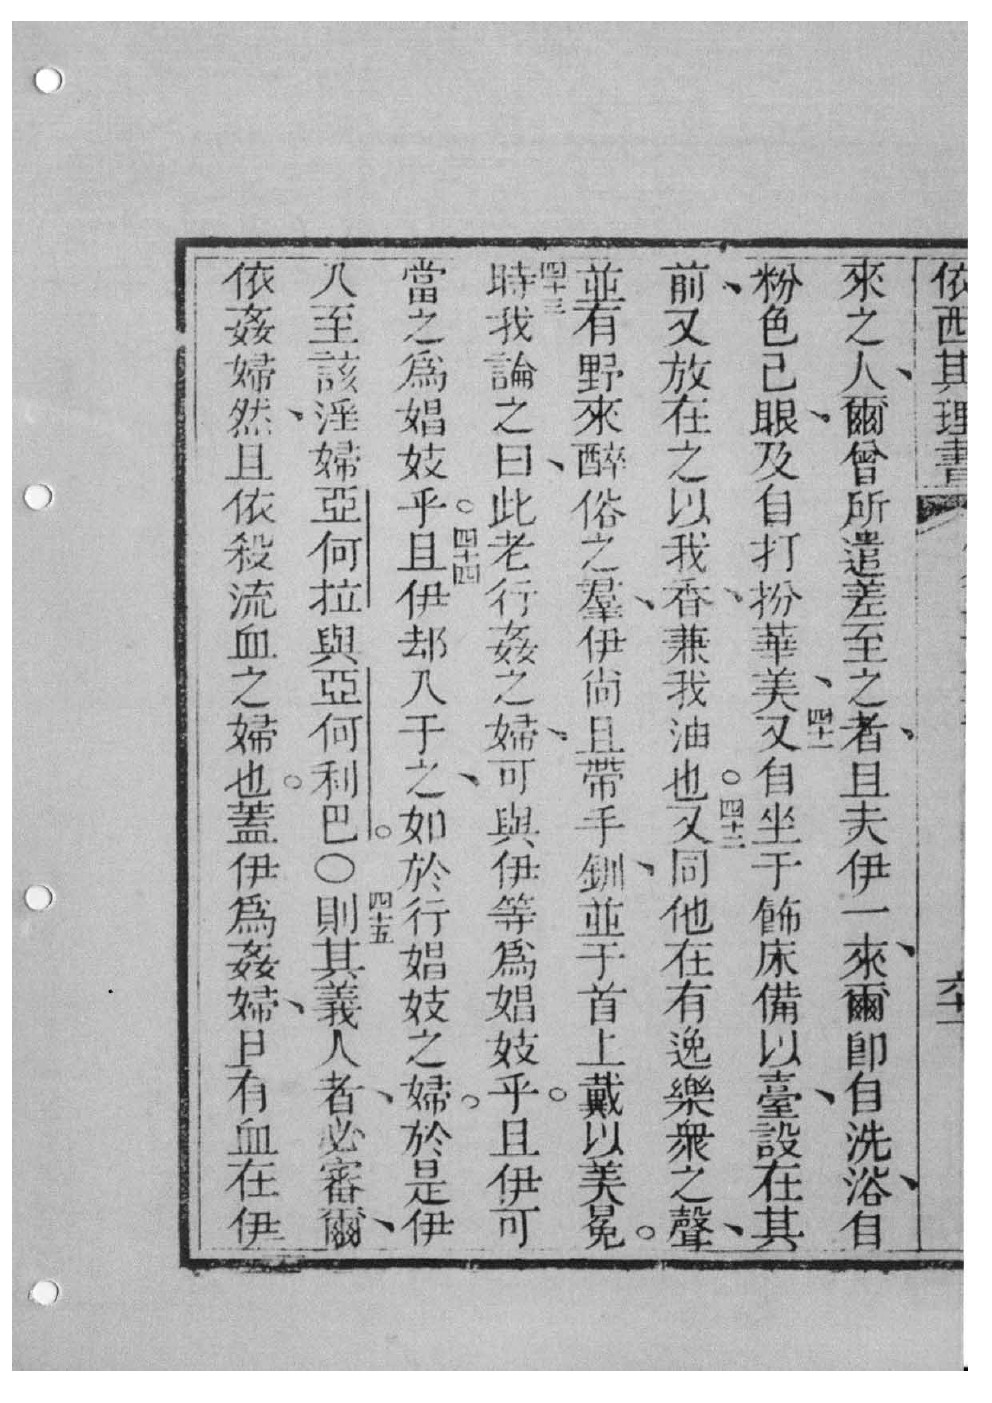 依西其理書
六十一
來之人、爾曾所遣差至之者、且夫伊一來、爾卽自洗浴、自
粉色己眼、及自打扮華美、四十一又自坐于飾床、備以臺、設在其
前、又放在之以我香、兼我油也。四十二又同他在有逸樂衆之聲、
並有野來醉俗之羣、伊尙且帶手釧、並于首上戴以美冕。
四十三時我論之曰、此老行姦之婦、可與伊等爲娼妓乎。且伊可
當之爲娼妓乎。四十四且伊却入于之、如於行娼妓之婦。於是伊
入至該淫婦亞何拉與亞何利巴。○四十五則其義人者、必審爾、
依姦婦然、且依殺流血之婦也。蓋伊爲姦婦、且有血在伊